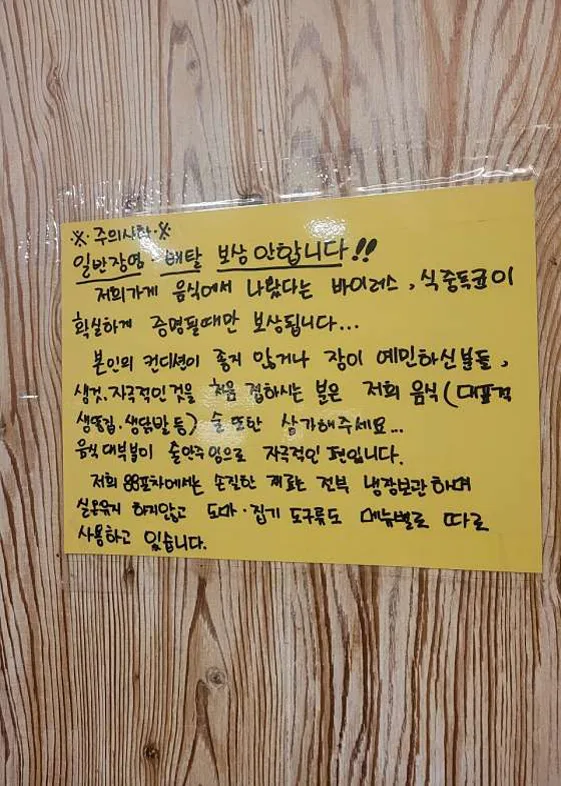 ※ 주의사항 ※
일반장염·배탈 보상 안합니다!!
저희가게 음식에서 나왔다는 바이러스, 식중독균이
확실하게 증명될때만 보상됩니다...
본인의 컨디션이 좋지 않거나 장이 예민하신분들,
생것, 자극적인것을 처음 접하시는 분은 저희 음식(대표적
생똥집, 생닭발 등) 술 또한 삼가해주세요...
음식 대부분이 술안주임으로 자극적인 편입니다.
저희 88포차에서는 손질한 재료는 전부 냉장보관하며
실온유지 하지않고 도마·집기 도구류도 메뉴별로 따로
사용하고 있습니다.